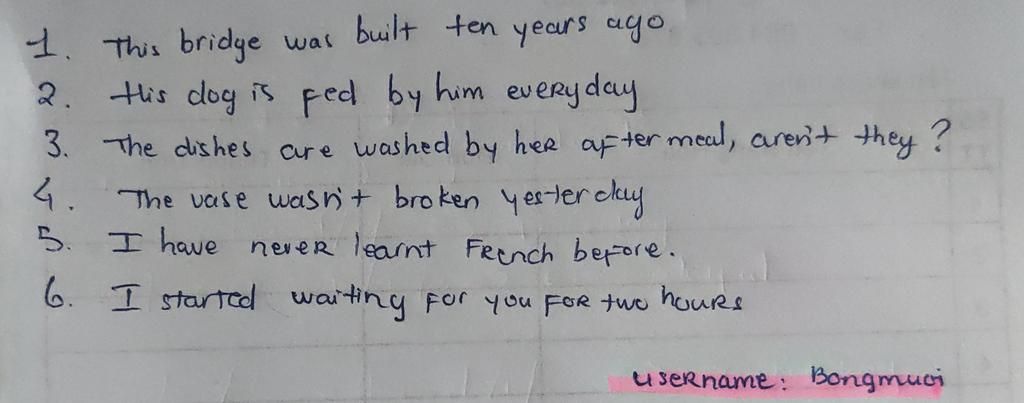 1. This bridge was built ten years ago.
2. His dog is fed by him everyday
3. The dishes are washed by her after meal, aren't they?
4. The vase wasn't broken yesterday
5. I have never learnt French before.
6. I started waiting for you for two hours
username: Bongmuoi